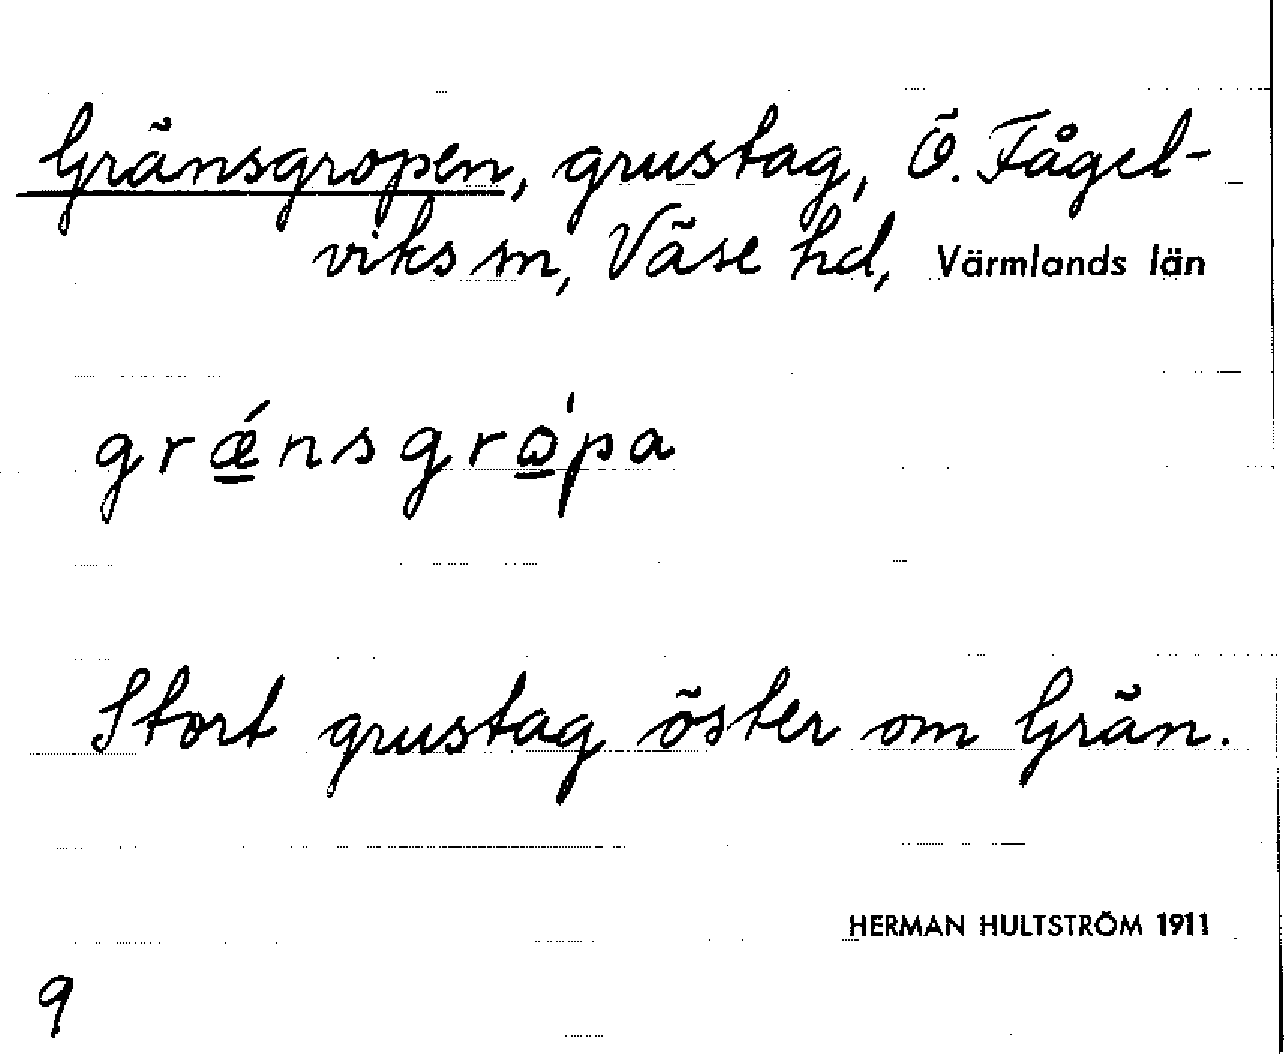 Gränsgropen, grustag, Ö. Fågel-
viks sn, Väse hd, Värmlands län
grǽnsgrɷ́pa
Stort grustag öster om Grän.
HERMAN HULTSTRÖM 1911
9